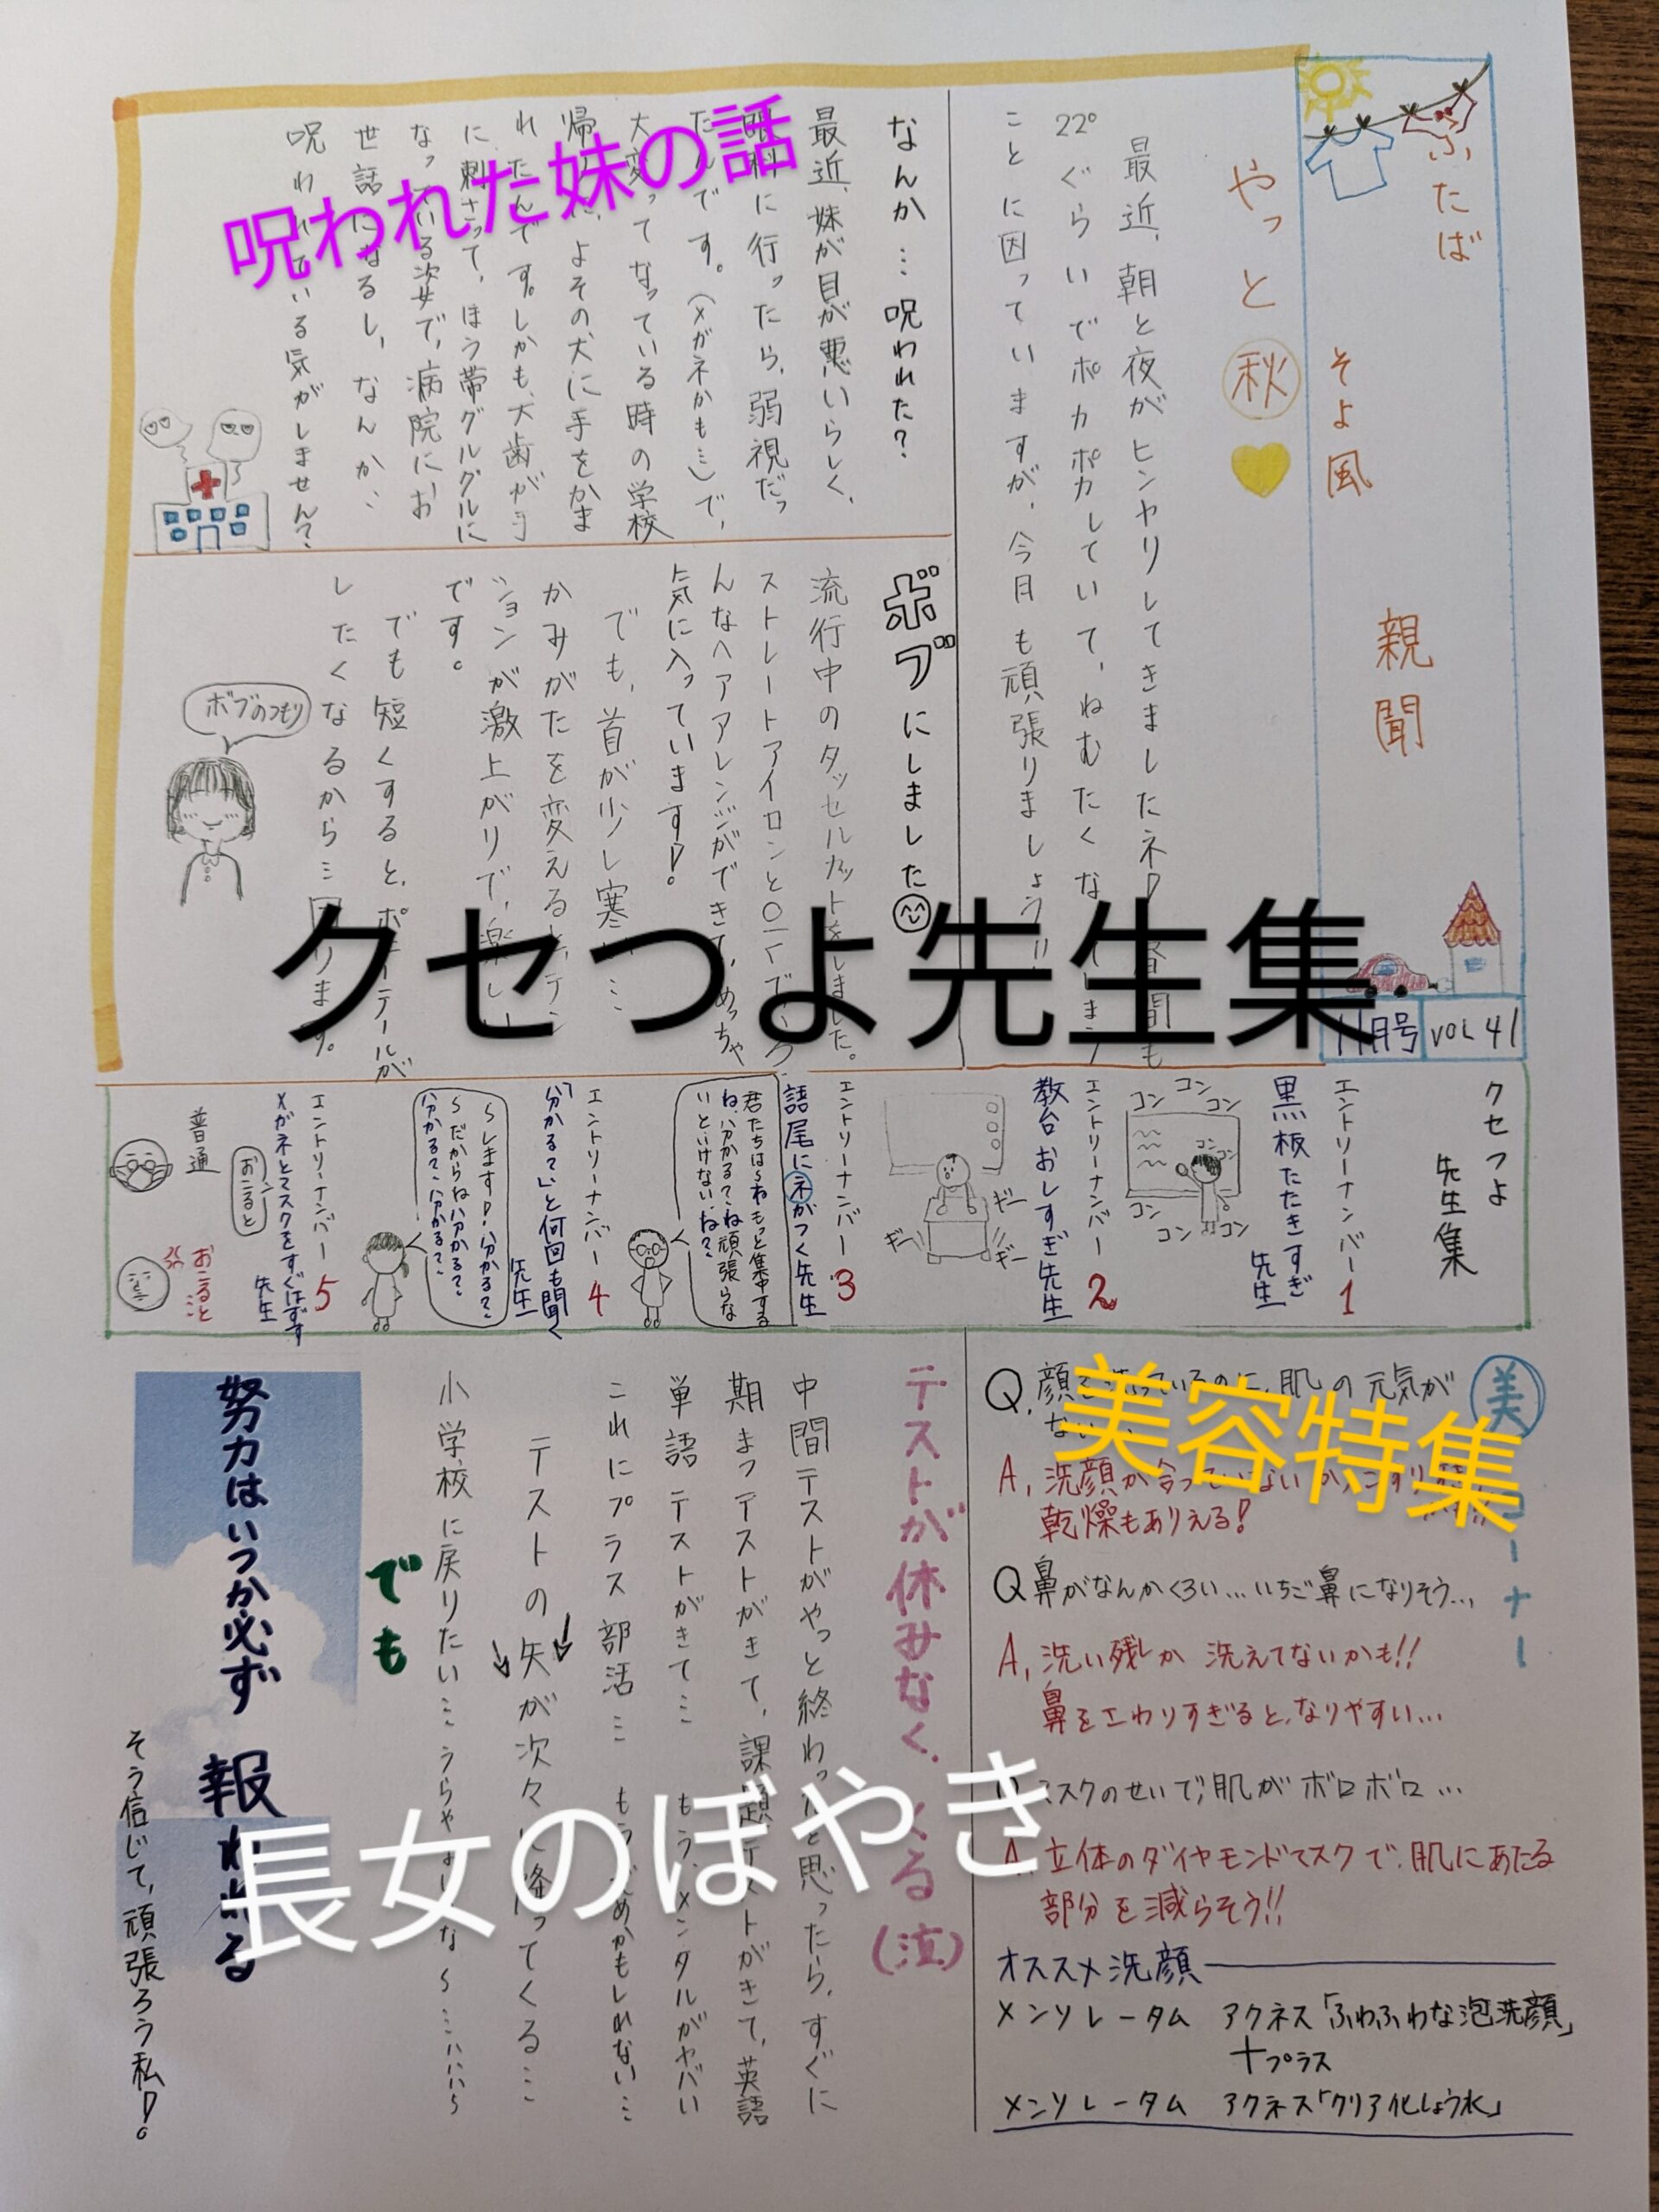 ふたば
そよ風
親聞
11月号
VOL 41
やっと秋
最近、朝と夜がヒンヤリしてきましたネ!
22°ぐらいでポカポカしていて、ねむたくな
ことに困っていますが、今月も頑張りましょう!!
なんか…呪われた?
最近、妹が目が悪いらしく、
眼科に行ったら、弱視だっ
たんです。(メガネかも…)で、
大変ってなっている時の学校
帰り、よその犬に手をかま
れたんです。しかも、犬歯が手
に刺さって、ほう帯グルグルに
なっている姿で、病院に、お
世話になるし、なんか、
呪われている気がしません?
呪われた妹の話
ボブにしました
流行中のタッセルカットをしました。
ストレートアイロンと
んなヘアアレンジができて、めっちゃ
気に入っています!
でも、首が少し寒い…
かみがたを変えると、テン
ションが激上がりで、楽しい
です。
でも短くすると、ポニーテールが
したくなるから…困ります。
ボブのつもり
クセつよ先生集
クセつよ
先生集
エントリーナンバー1
黒板たたきすぎ
先生
コン
コン
コン
コン
コン
コン
コン
コン
エントリーナンバー2
教台おしすぎ先生
ギー
ギー
ギー
エントリーナンバー3
語尾にネがつく先生
君たちは〜ねもっと集中する
ね、分かる?ね頑張らな
いといけない、ね?
エントリーナンバー4
「分かる?」と何回も聞く
先生
〜します!分かる?
〜だからね分かる?
分かる?、分かる?
エントリーナンバー5
メガネとマスクをすぐはずす
先生
おこると
普通
おこると
美コーナー
美容特集
Q.顔を洗っているのに、肌の元気が
ない
A,洗顔が合っていないか、こすりすぎ
乾燥もありえる!
Q鼻がなんかくろい…いちご鼻になりそう…
A,洗い残しか 洗えてないかも!!
鼻をさわりすぎると、なりやすい…
Qマスクのせいで、肌がボロボロ…
A,立体のダイヤモンドマスクで、肌にあたる
部分を減らそう!!
オススメ洗顔
メンソレータム アクネス「ふわふわな泡洗顔」
+プラス
メンソレータム アクネス「クリア化しょう水」
テストが休みなく、くる(泣)
中間テストがやっと終わったと思ったら、すぐに
期まつテストがきて、課題テストがきて、英語
単語テストがきて…もう、メンタルがヤバい
これにプラス部活…もうだめかもしれない…
テストの矢が次々に降ってくる…
小学校に戻りたい…うらやましいな〜…ハハハ〜
長女のぼやき
でも
努力はいつか必ず 報われる
そう信じて、頑張ろう私!。